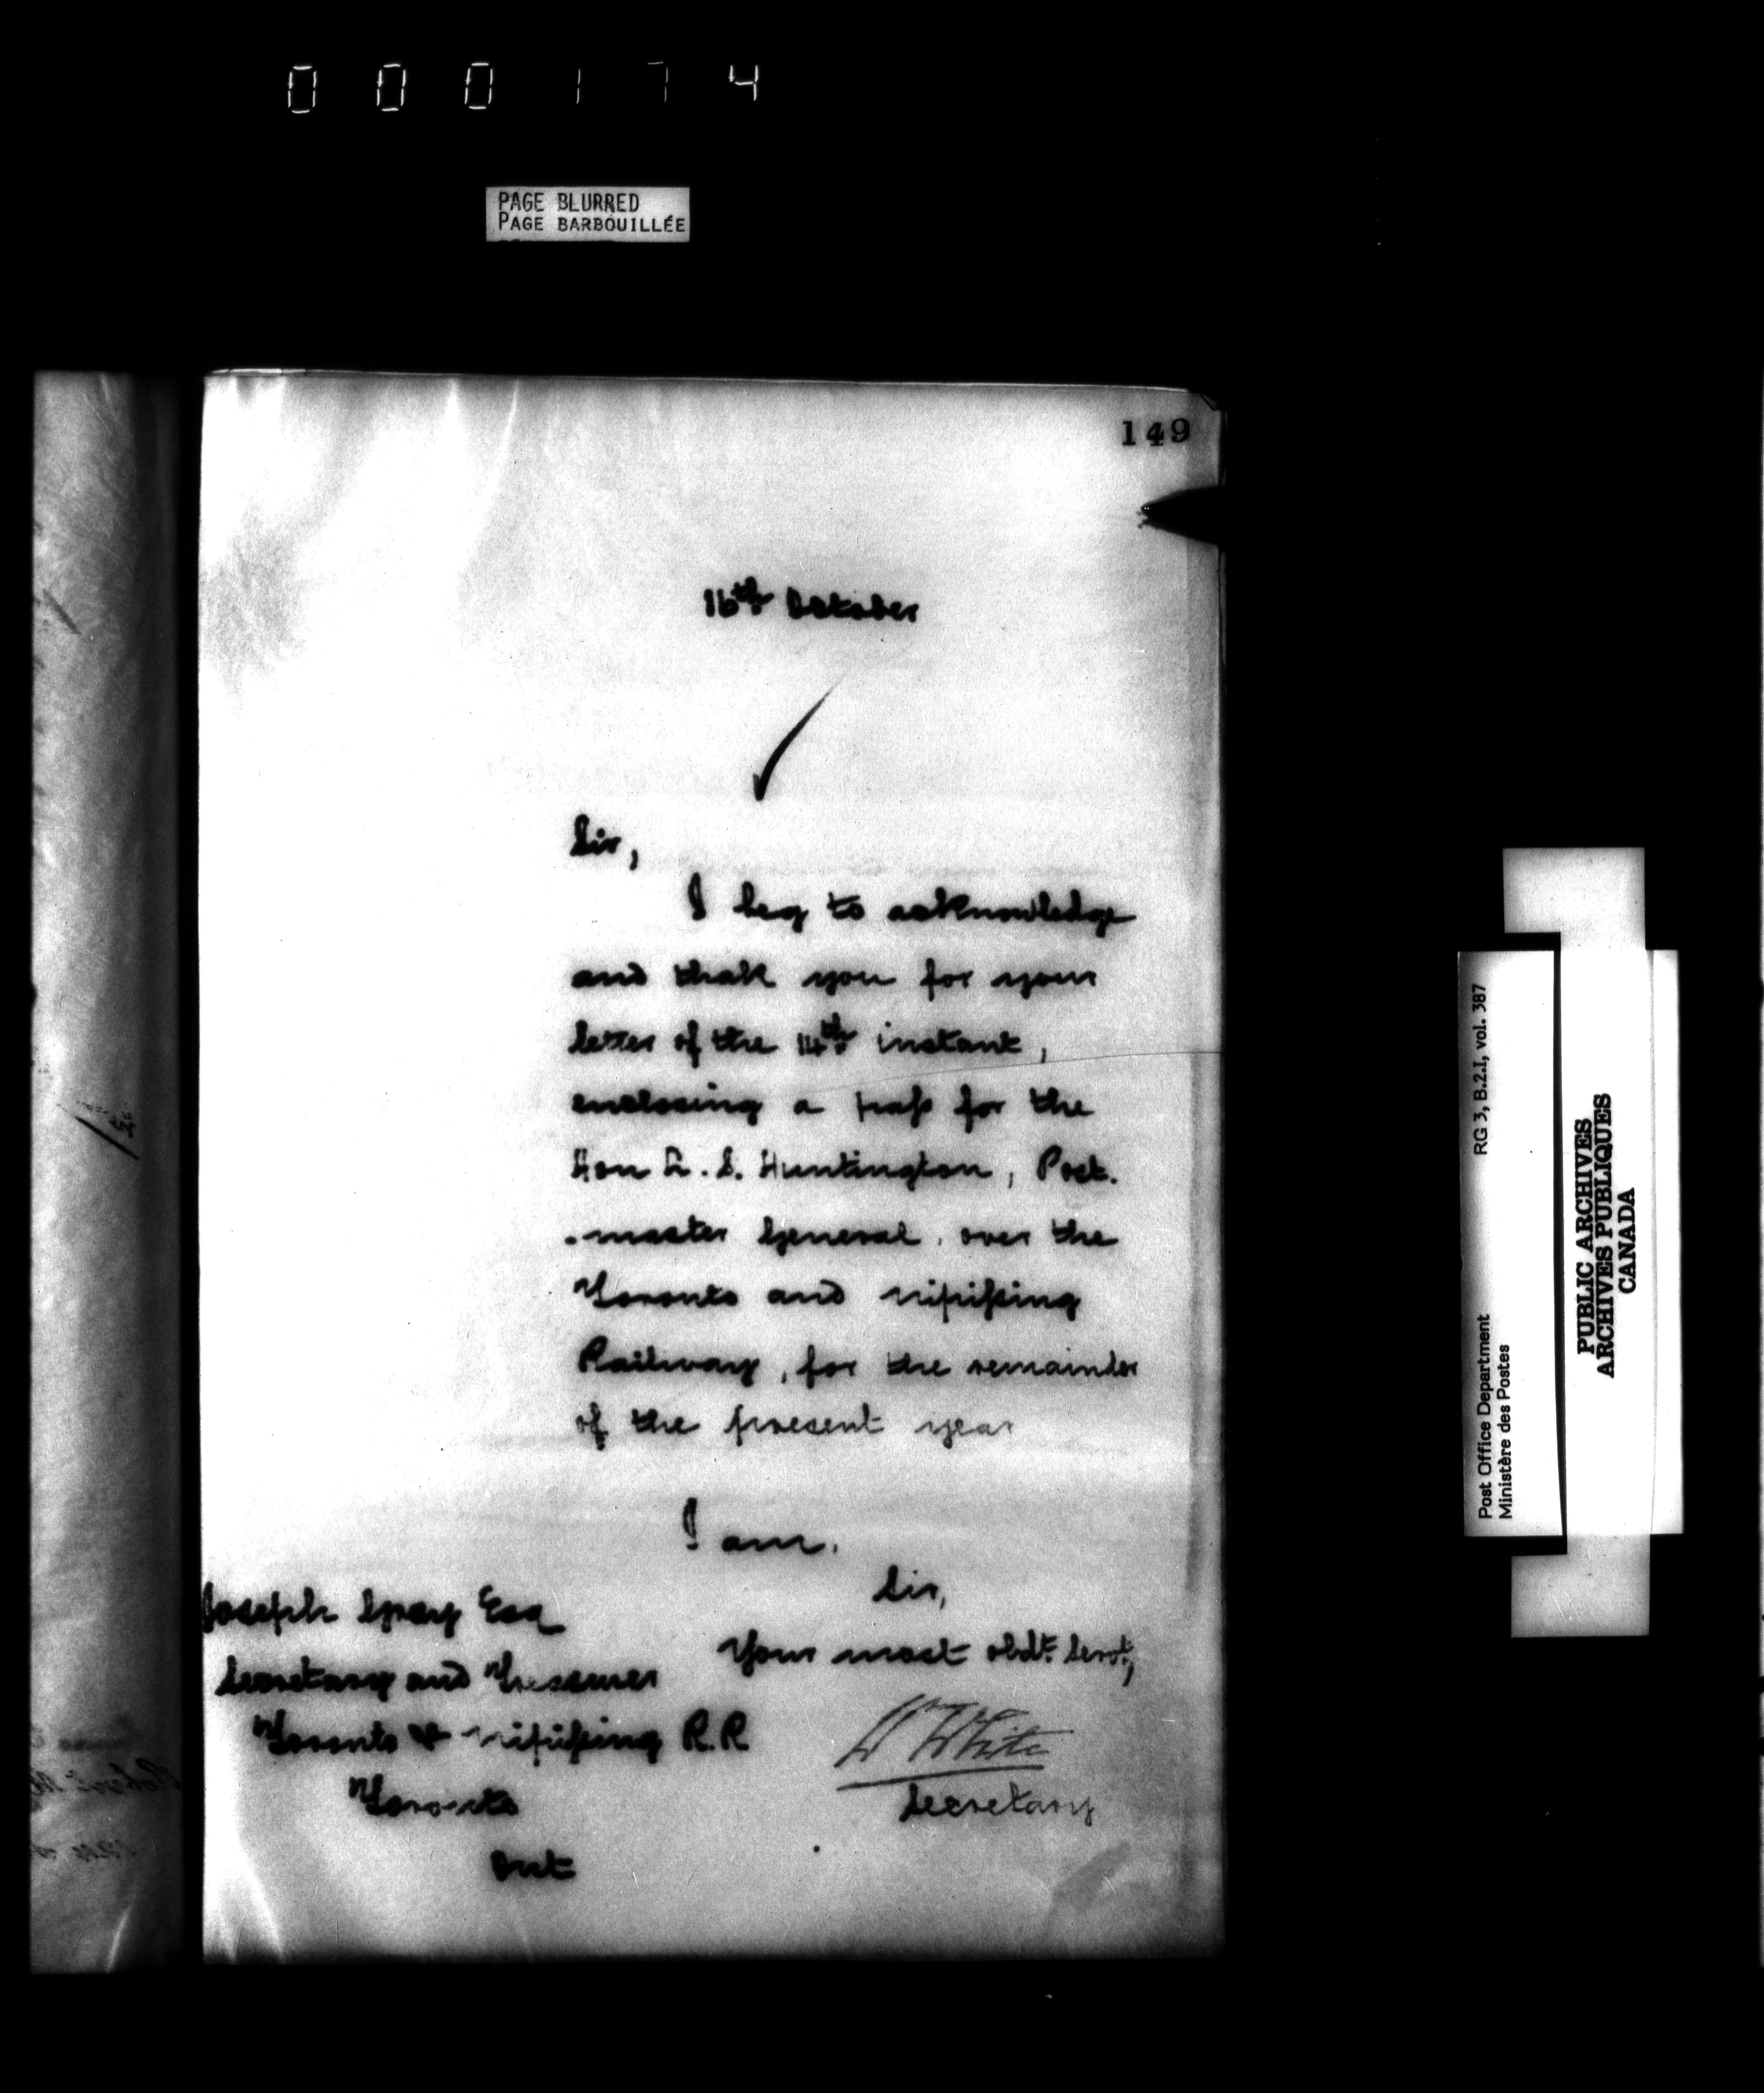 000174
PAGE BLURRED
PAGE BARBOUILLÉE
149
16th October
Sir,
I beg to acknowledge
and thak you for your
letter of the 14th instant,
enclosing a pass for the
Hon L. S. Huntington, Post.
-master General, over the
Toronto and nipissing
Railway, for the remainder
of the present year
I am,
Sir,
Your most obdt. Servt.,
W White
Secretary
Joseph Gray Esq
Secretary and Treasurer
Toronto & nipissing R.R
Toronto
Ont
Post Office Department RG 3, B.2.I, vol. 387
Ministère des Postes
PUBLIC ARCHIVES
ARCHIVES PUBLIQUES
CANADA